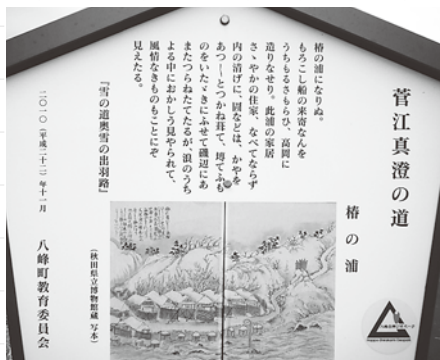 菅江真澄の道
椿の浦
椿の浦になりぬ。
もろこし船の来寄なんを
うちもるさもらひ、高岡に
造りなせり。此浦の家居
さゝやかの住家、なべてならず
内の清げに、圓などは、かやを
あつ〳〵とつかね葺て、埓てふも
のをいたゞきにふせて磯辺にあ
またつらねたてたるが、浪のうち
よる中におかしう見やられて、
風情なきものもことにぞ
見えたる。
『雪の道奥雪の出羽路』
(秋田県立博物館蔵 写本)
二〇一〇(平成二十二)年十一月
八峰町教育委員会